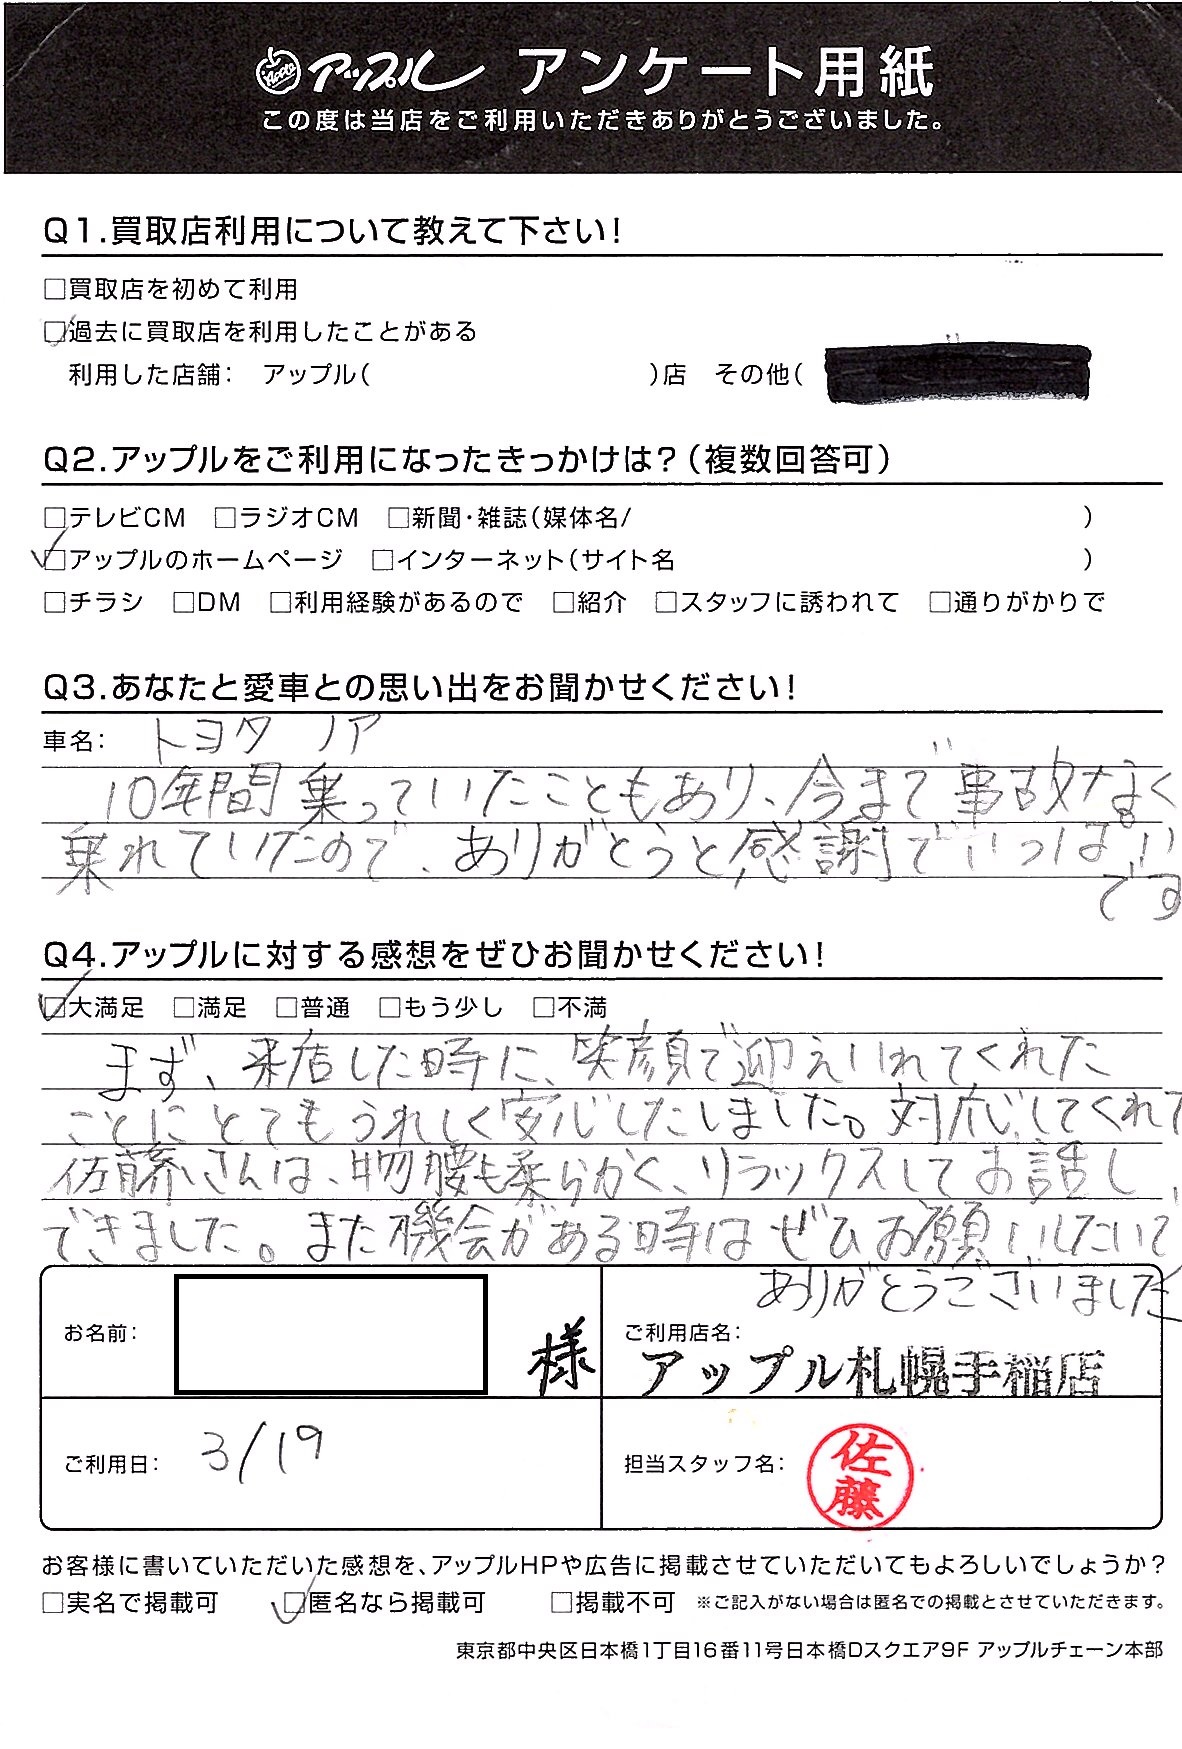 アップル アンケート用紙
この度は当店をご利用いただきありがとうございました。
Q1.買取店利用について教えて下さい!
□買取店を初めて利用
☑過去に買取店を利用したことがある
利用した店舗: アップル( )店 その他(
Q2.アップルをご利用になったきっかけは?(複数回答可)
□テレビCM □ラジオCM □新聞・雑誌(媒体名/ )
☑アップルのホームページ □インターネット(サイト名 )
□チラシ □DM □利用経験があるので □紹介 □スタッフに誘われて □通りがかりで
Q3.あなたと愛車との思い出をお聞かせください!
車名: トヨタ ノア
10年間乗っていたこともあり、今まで事故なく
乗れていたので、ありがとうと感謝でいっぱい
です
Q4.アップルに対する感想をぜひお聞かせください!
☑大満足 □満足 □普通 □もう少し □不満
まず、来店した時に、笑顔で迎えいれてくれた
ことにとてもうれしく安心したしました。対応してくれて
佐藤さんは、物腰も柔らかく、リラックスしてお話し
できました。また機会がある時はぜひお願いしたいで
ありがとうございました
お名前: 様
ご利用店名:
アップル札幌手稲店
ご利用日: 3/19
担当スタッフ名: 佐藤
お客様に書いていただいた感想を、アップルHPや広告に掲載させていただいてもよろしいでしょうか?
□実名で掲載可 ☑匿名なら掲載可 □掲載不可 ※ご記入がない場合は匿名での掲載とさせていただきます。
東京都中央区日本橋1丁目16番11号日本橋Dスクエア9F アップルチェーン本部